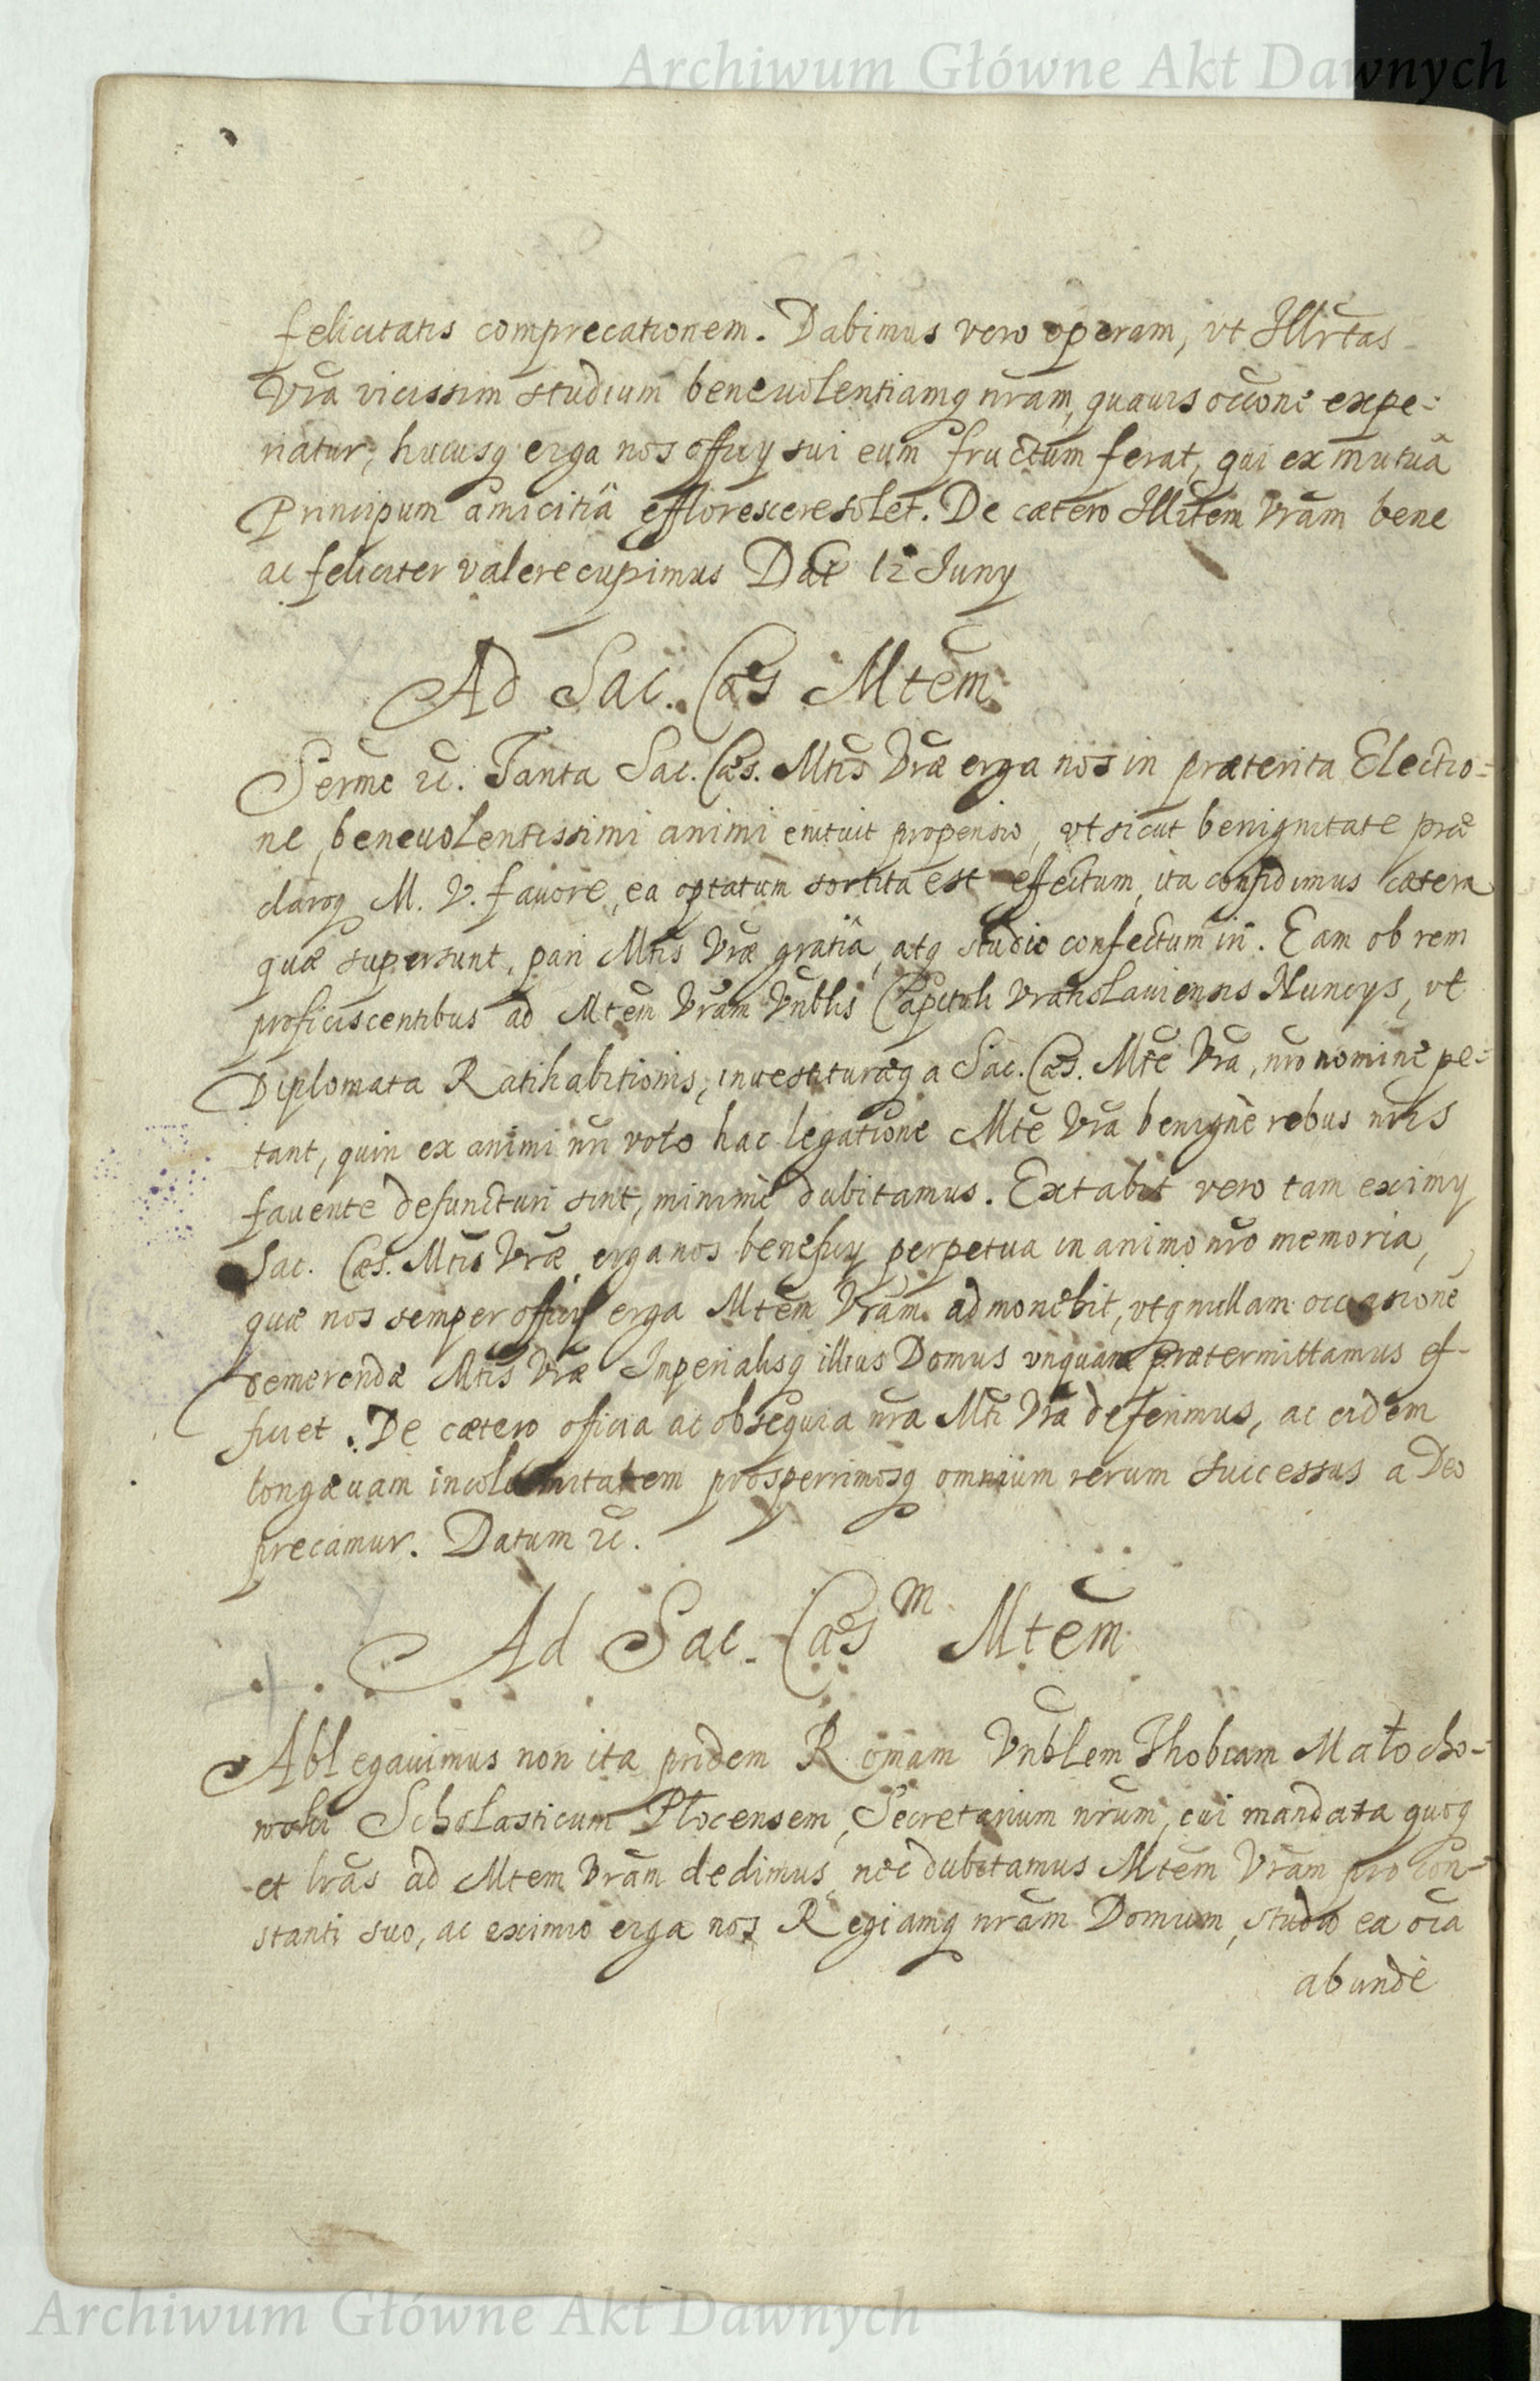 Archiwum Główne Akt Dawnych
felicitatis comprecationem. Dabimus vero operam, vt Illrtas
Vra vicissim studium beneuolentiamq nram, quauis occone expe=
riatur, huiusq erga nos officy sui eum fructum ferat, qui ex mutuâ
Principum amicitiâ efflorescere solet. De cætero Illrtem Vram bene
ac feliciter valere cupimus Dat 12 Iuny
Ad Sac. Cæs Mtem.
Serme &c. Tanta Sac. Cæs. Mtis Vræ erga nos in præterita Electio=
ne, beneuolentissimi animi enituit propensio, vt sicut benignitate præ
claroq M. V. fauore, ea optatum sortita est effectum, ita confidimus cætera
quæ supersunt, pari Mtis Vræ gratiâ, atq studio confectum iri. Eam ob rem
proficiscentibus ad Mtem Vram Vnblis Capituli Vratislauiensis Nuncys, vt
Diplomata Ratihabitionis, inuestituræq a Sac. Cæs. Mte Vra, nro nomine pe=
tant, quin ex animi nri voto hac legatione Mte Vra benignè rebus nris
fauente defuncturi sint, minimè dubitamus. Extabit vero tam eximy
Sac. Cæs. Mtis Vræ erga nos beneficy perpetua in animo nro memoria,
quæ nos semper officy erga Mtem Vram admonebit, vtq nullam occasione
demerendæ Mtis Vræ Imperialisq illius Domus vnquam prætermittamus ef-
ficiet. De cætero oficia ac obsequia nra Mti Vræ deferimus, ac eidem
longæuam incolumitatem prosperrimosq omnium rerum successus a Deo
precamur. Datum &c.
Ad Sac. Cæsm Mtem
Ablegauimus non ita pridem Romam Vnblem Thobiam Małocho-
wski Scholasticum Płocensem, Secretarium nrum, cui mandata quoq
et lras ad Mtem Vram dedimus, nec dubitamus Mtem Vram pro con-
stanti suo, ac eximio erga nos Regiamq nram Domum, studio ea oia
abundè
Archiwum Główne Akt Dawnych